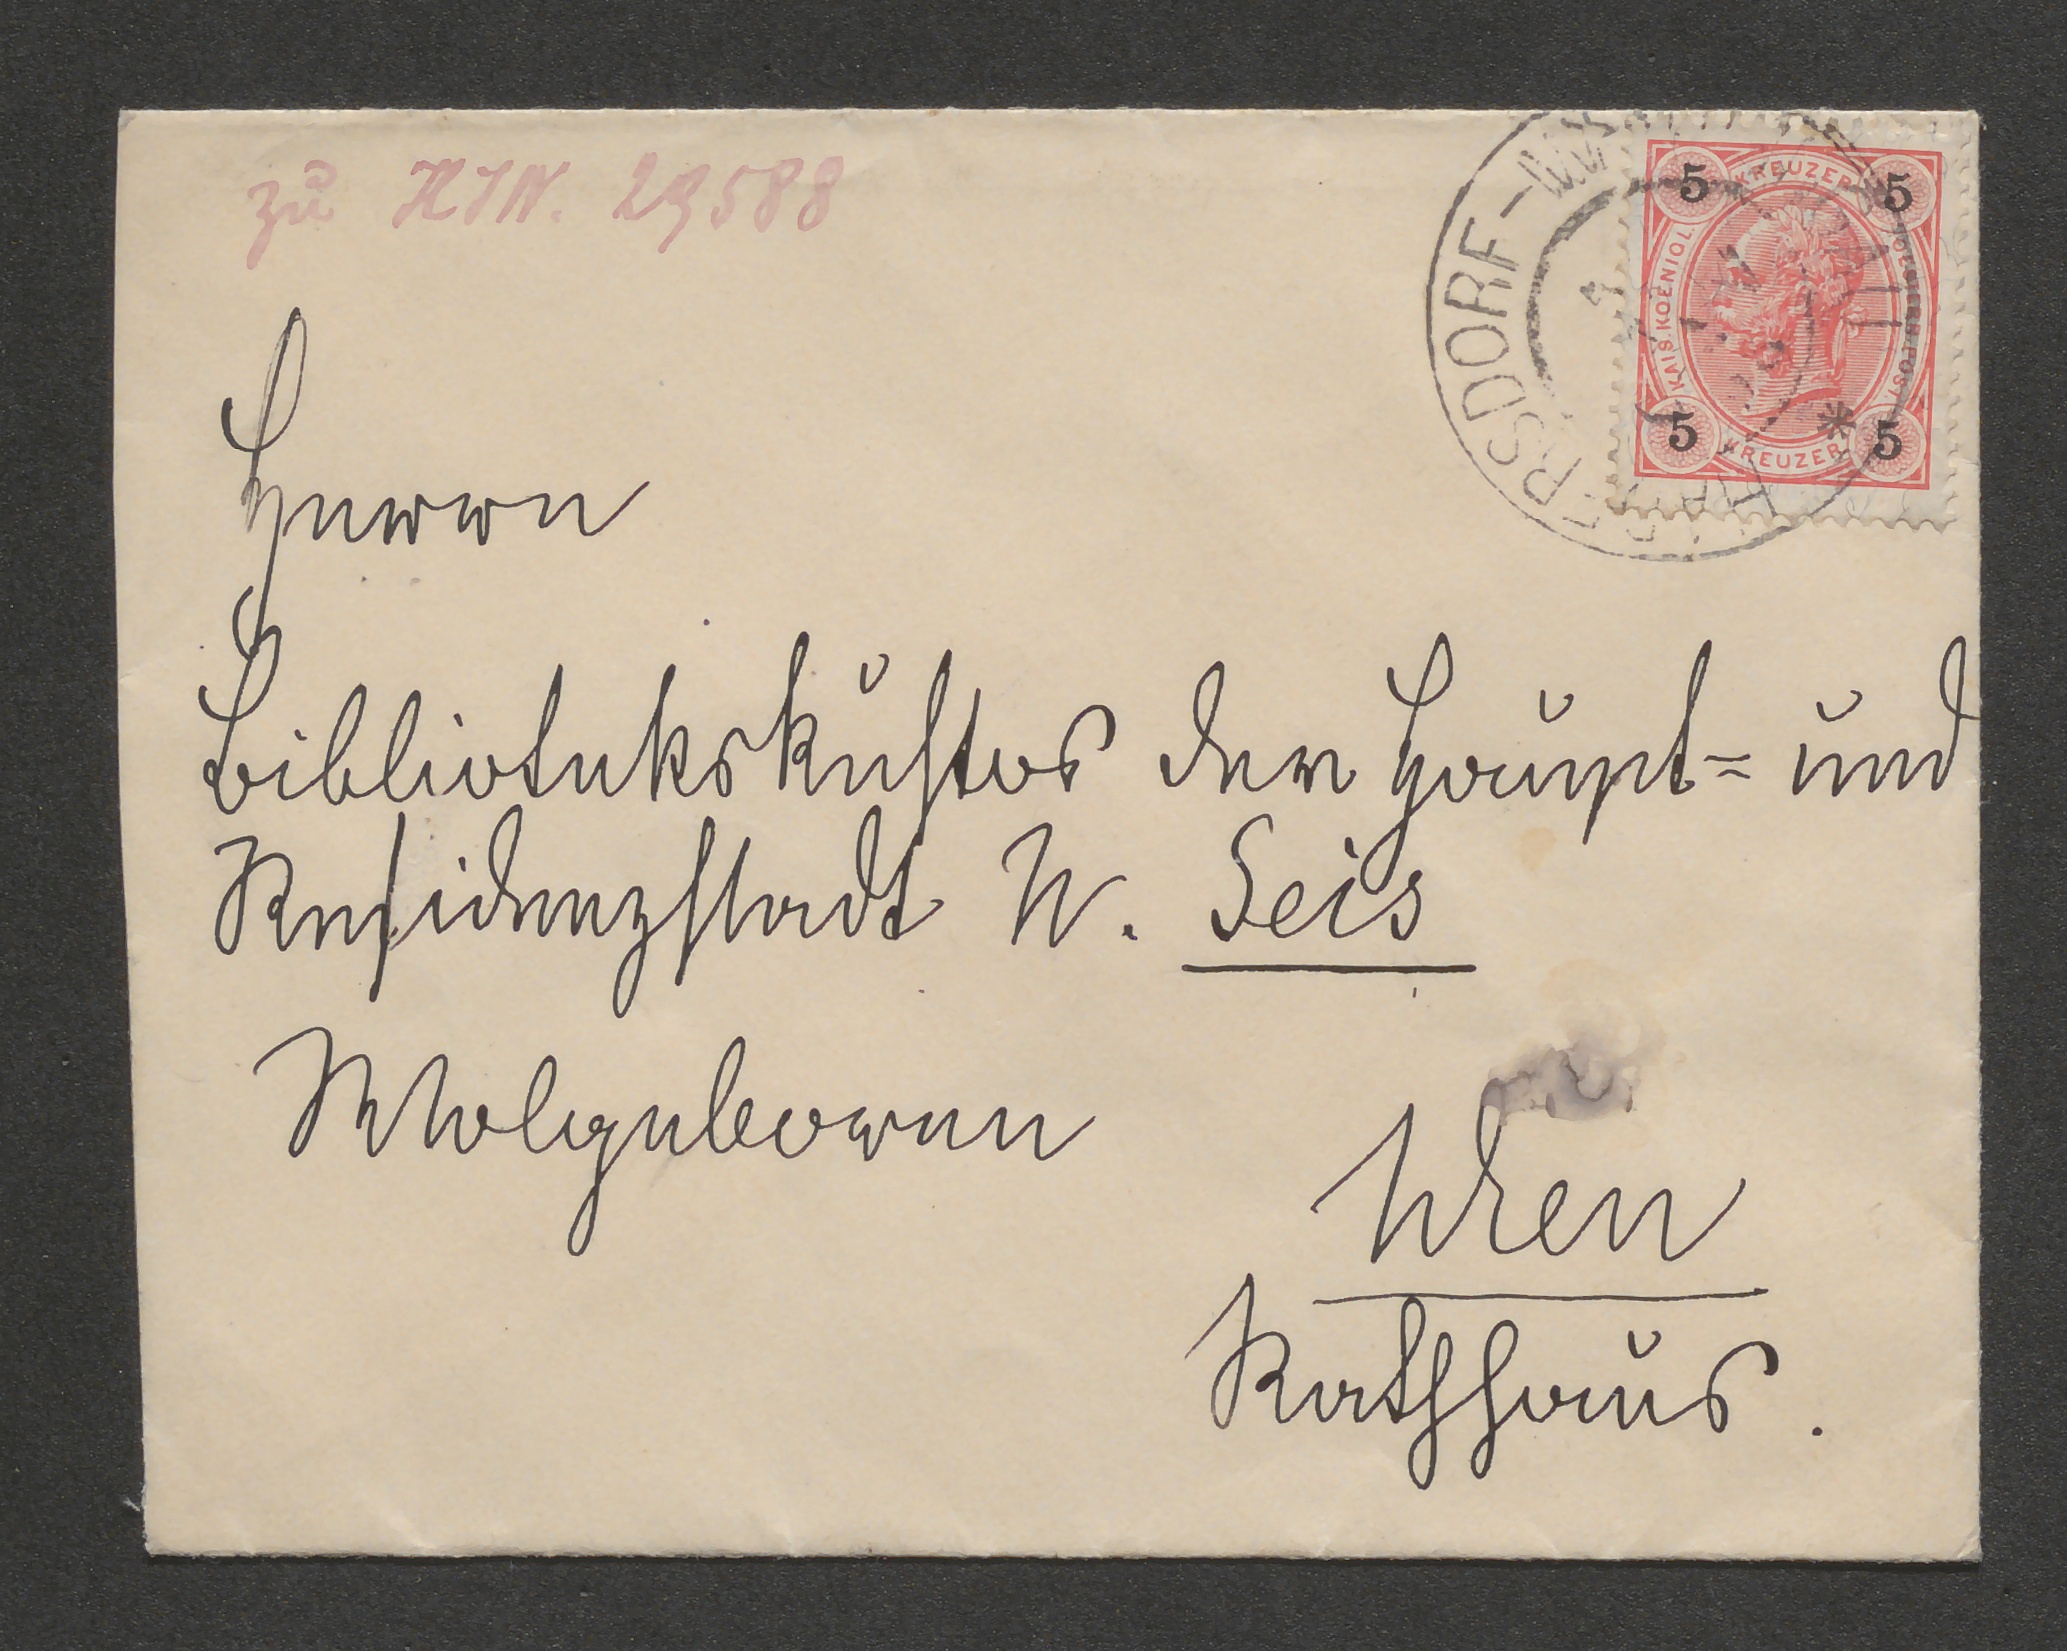 zu HIN. 29588
5 KREUZER 5
KAIS. KOENIGL.
5 KREUZER 5
Herrn
Bibliothekskustos der Haupt= und
Residenzstadt W. Seis
Wohlgeboren
Wien
Rathhaus.